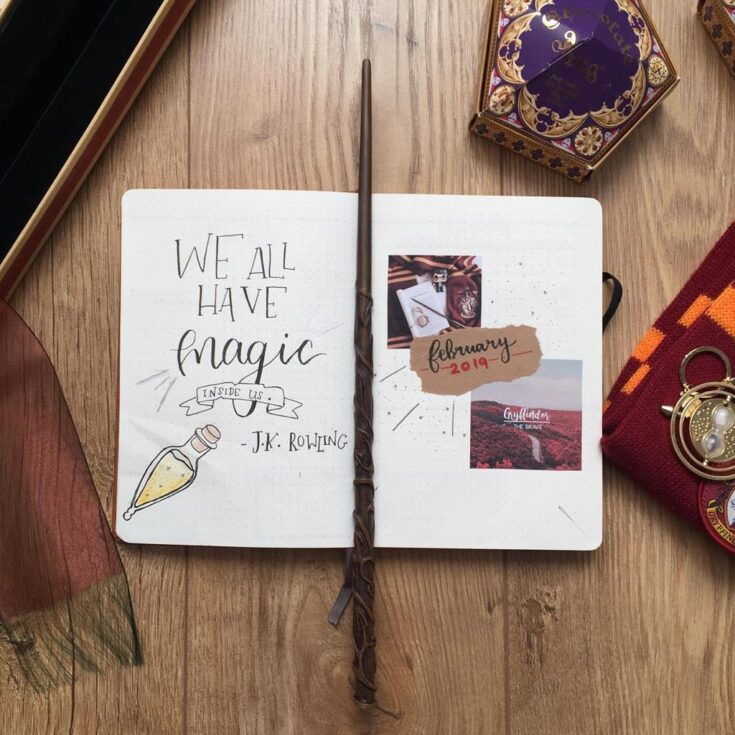 WE ALL
HAVE
magic
INSIDE US.
- J.K. ROWLING
february
2019
Gryffindor
THE BRAVE
Chocolate
Frog